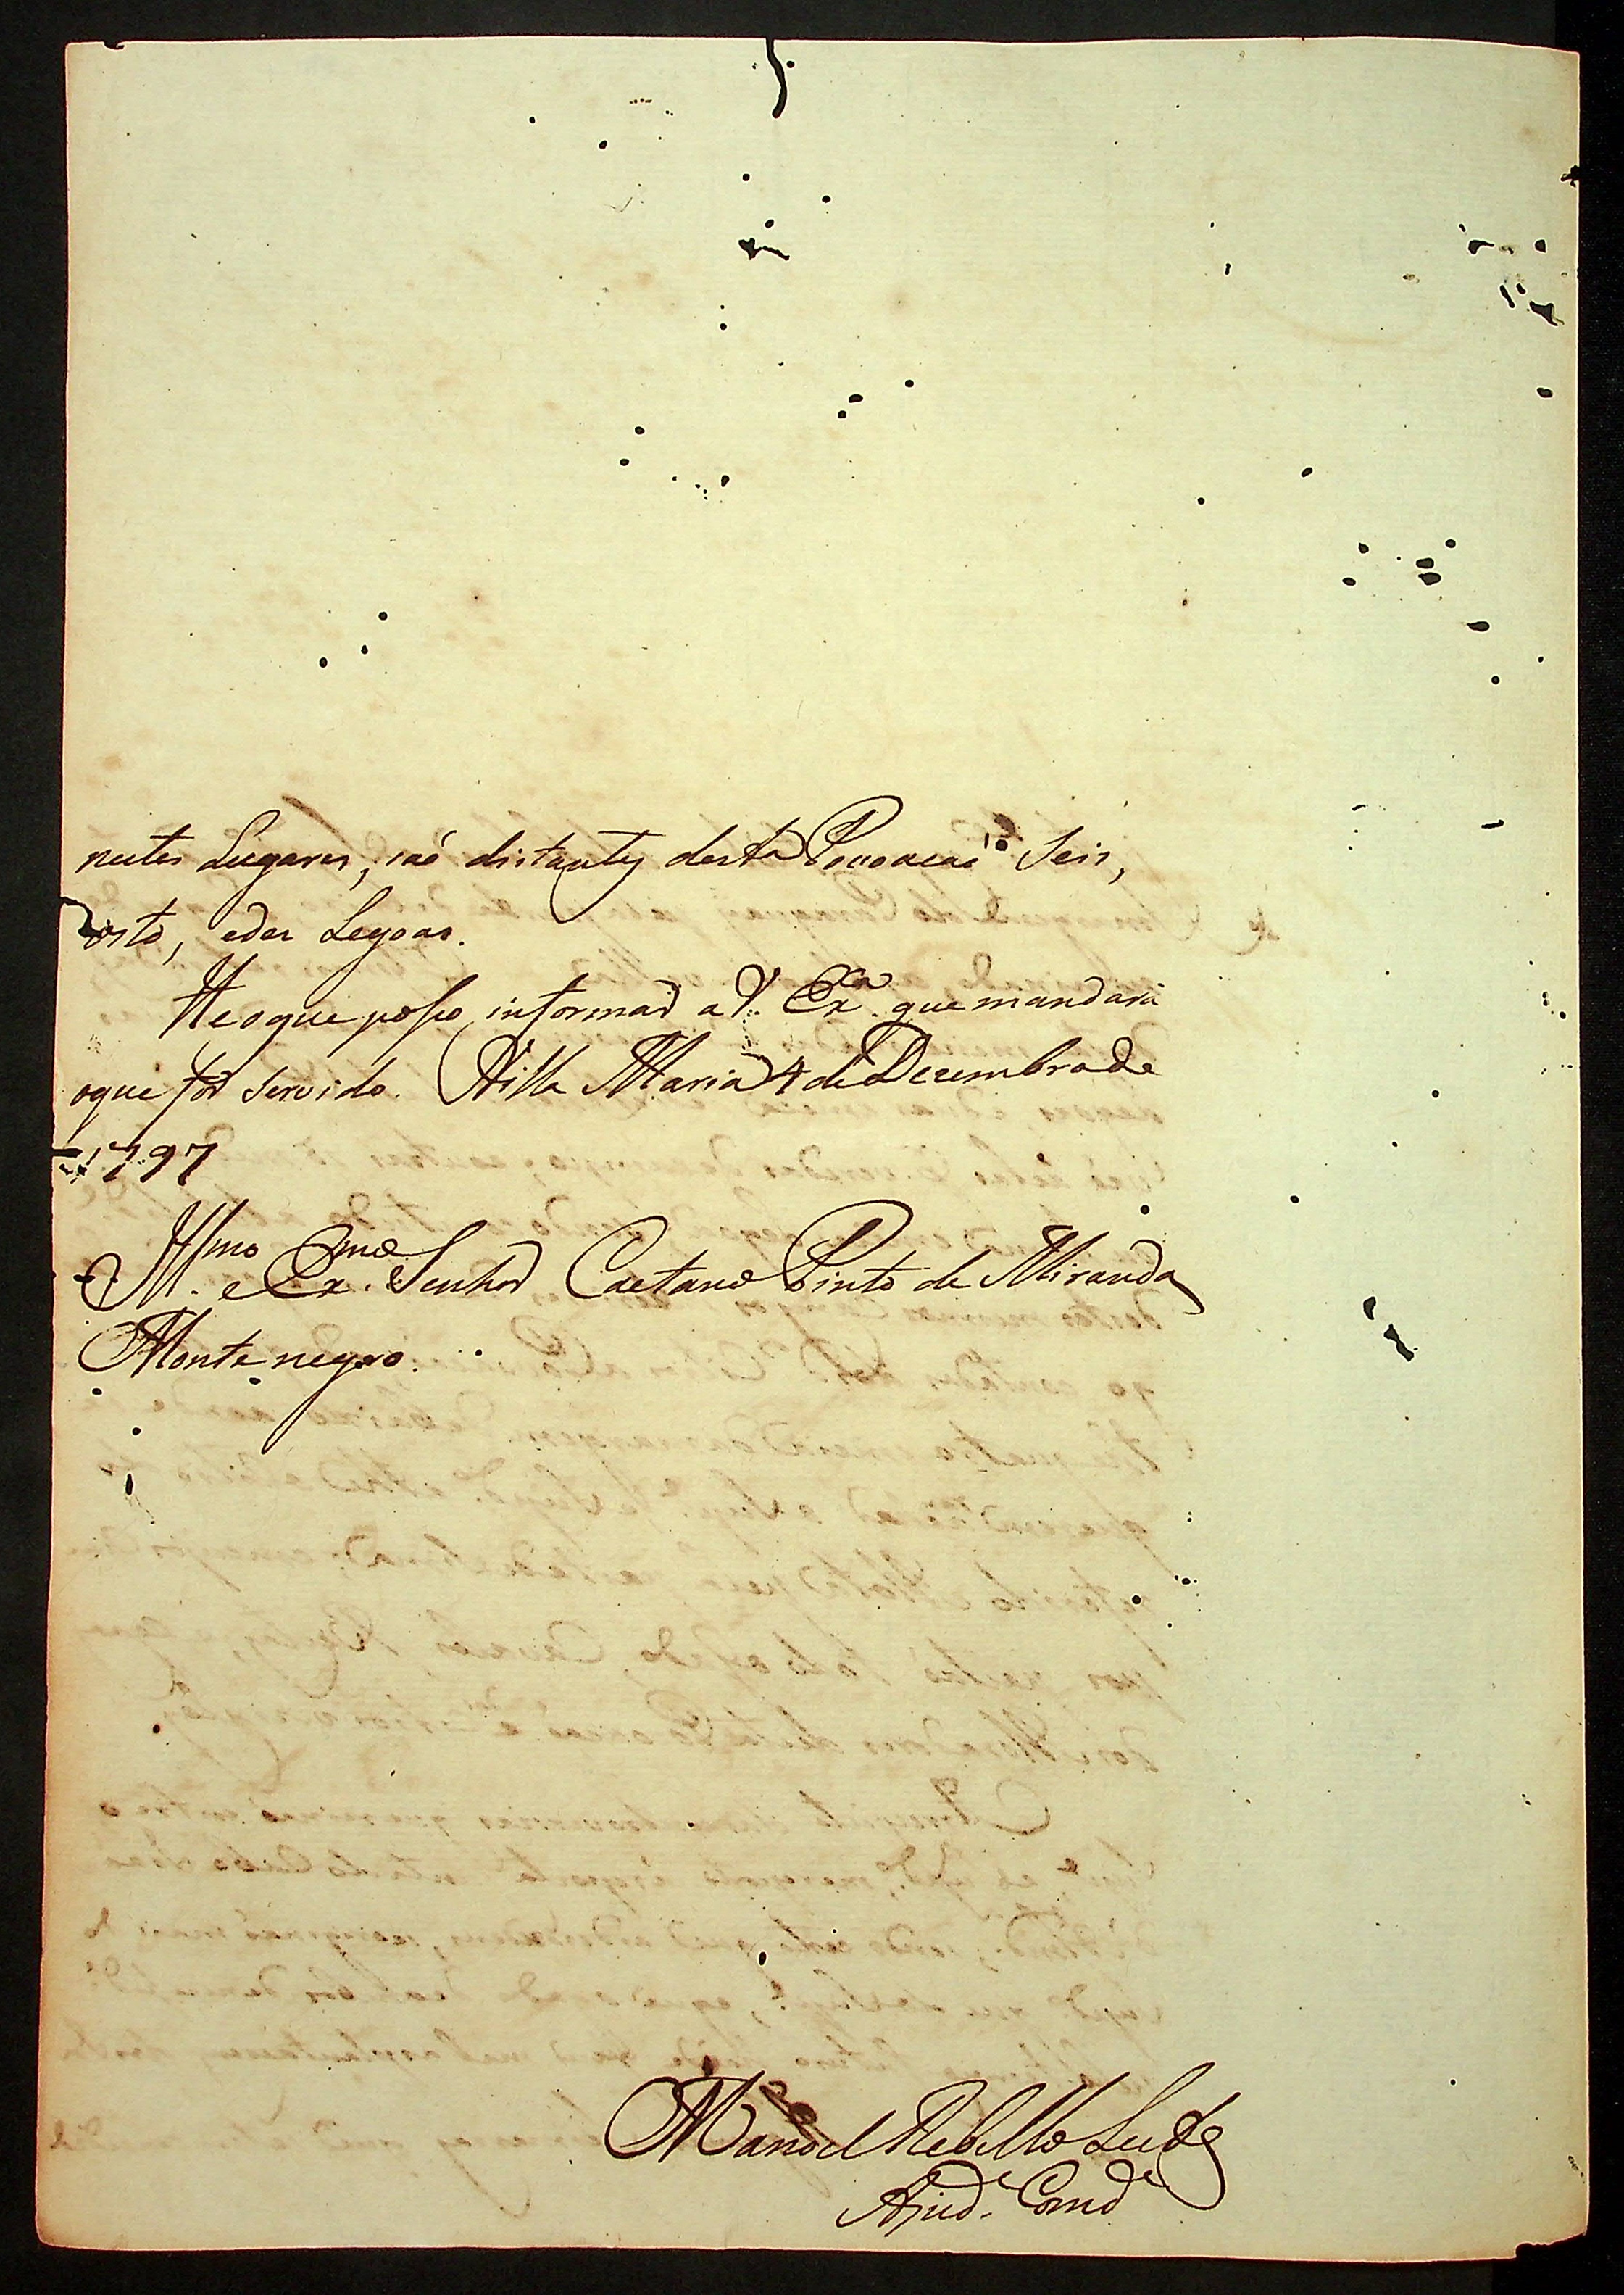 nestes Lugares, saó distantes desta Povoacaó Seis,
oito, edes Legoas.
He oque posso informar a V. Exª. que mandará
oque for servido. Villa Maria 4 de Dezembro de
1797
Illmo e Exmo. Senhor Caetano Pinto de Miranda
Montenegro.
Manoel Rebello Leite
Ajud.e Comd.e